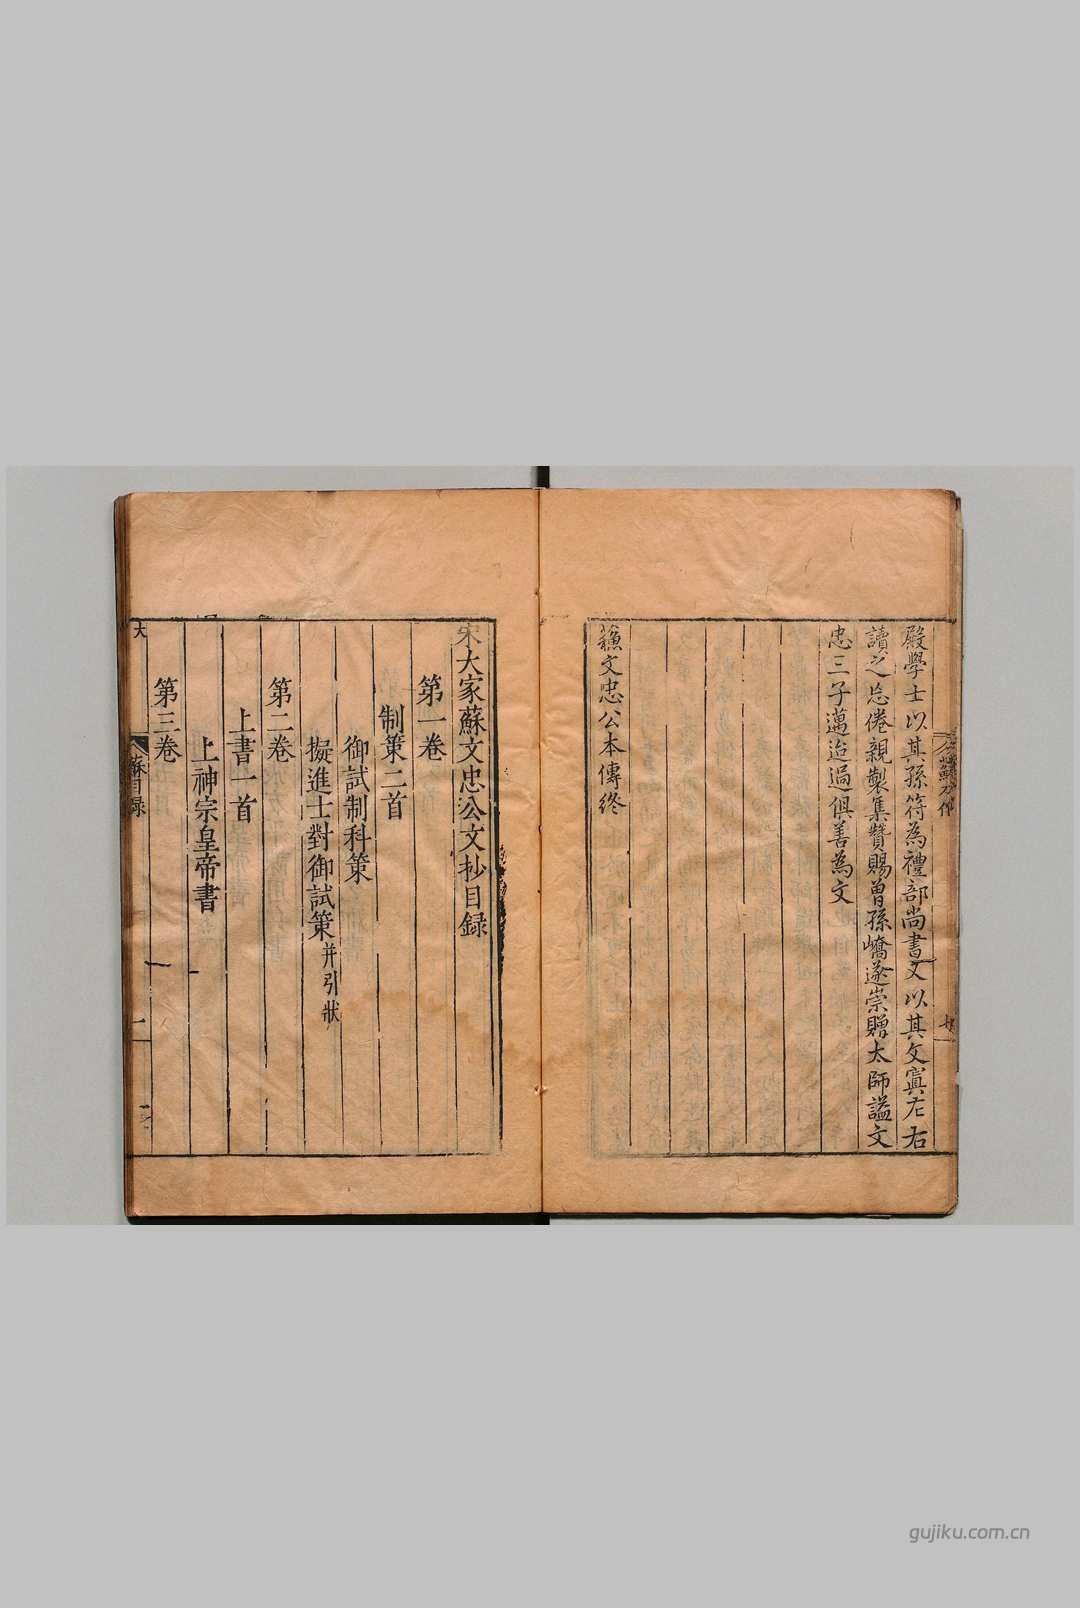 殿學士以其孫符為禮部尚書又以其文寘左右
讀之忘倦親製集贊賜曾孫嶠遂崇贈太師謚文
忠三子邁迨過俱善為文
蘓文忠公本傳終
宋大家蘇文忠公文抄目録
第一卷
制策二首
御試制科策
擬進士對御試策并引狀
第二卷
上書一首
上神宗皇帝書
第三卷
蘇目録
一
gujiku.com.cn